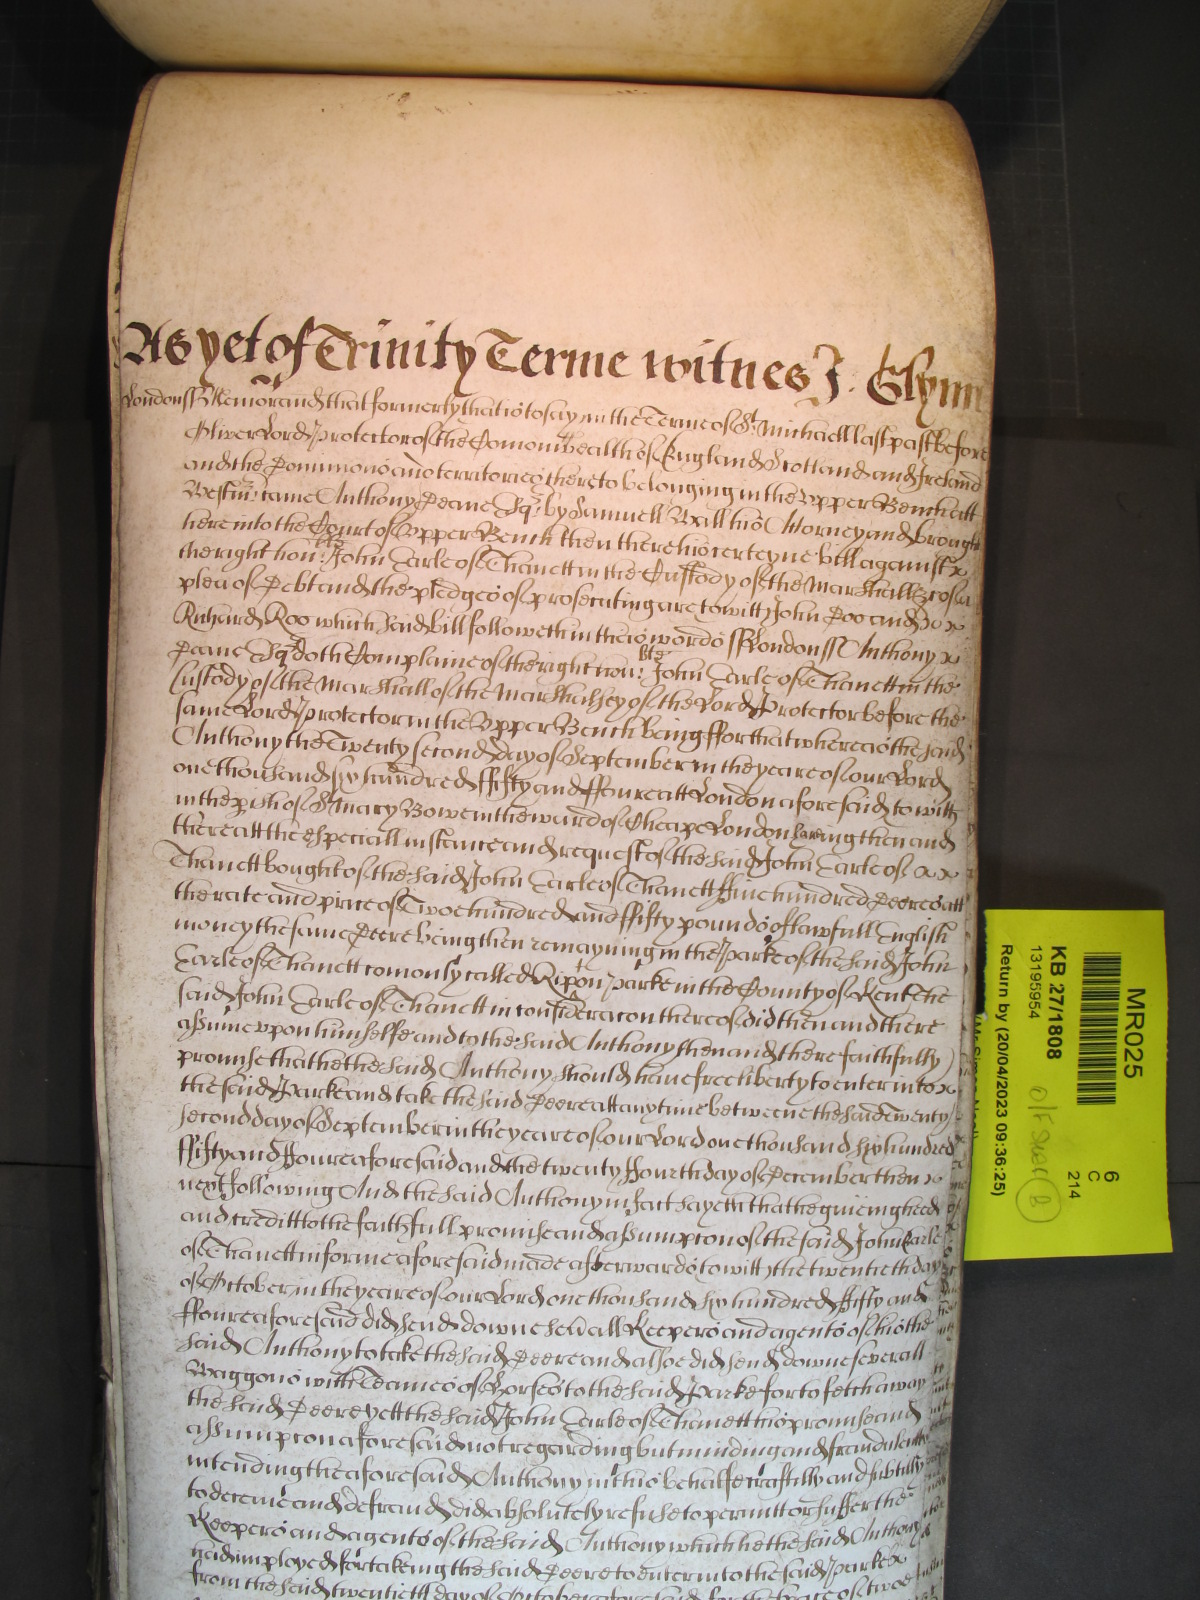 As yet of Trinity Terme witnes J. Glynn
Londonss Memorand that formerly that is to say in the Terme of St. Michaell last past before
Oliver Lord Protector of the Comonwealth of England Scotland and Ireland
and the Dominions and territories thereto belonging in the Upper Bench att
Westmr. came Anthony Deane Esqr. by Samuell Ball his Attorney and brought
here into the Court of Upper Bench then there his certeyne bill against x
the right honble: John Earle of Thanett in the Custody of the Marshall &c of a
plea of Debt and the pledges of prosecuting are to witt John Doo and x x
Richard Roo which said bill followeth in theis words ss Londonss Anthony x
Deane Esqr doth Complaine of the right honble: John Earle of Thanett in the
Custody of the Marshall of the Marshalsey of the Lord Protector before the
same Lord Protector in the Upper Bench being ffor that whereas the said
Anthony the Twenty second day of September in the yeare of our Lord
one thousand six hundred ffifty and ffoure att London aforesaid to witt
in the pish of St Mary Bowe in the ward of Cheape London haveing then and
there att the especiall instance and request of the said John Earle of x x
Thanett bought of the said John Earle of Thanett ffive hundred Deere att
the rate and price of Twoe hundred and ffifty pounds of lawfull English
money the same Deere being then remayning in the Parke of the said John
Earle of Thanett comonly called Ripon Parke in the County of Kent the
said John Earle of Thanett in consideracon thereof did then and there
assume upon himselfe and to the said Anthony then and there faithfully
promise that he the said Anthony should have free liberty to enter into x
the said Parke and take the said Deere att any time betweene the said Twenty
second day of September in the yeare of our Lord one thousand six hundred
ffifty and ffoure aforesaid and the twenty ffourth day of December then x
next following And the said Anthony in fact sayeth that he giveing heed
and creditt to the faithfull promise and assumpcon of the said John Earle
of Thanett in forme aforesaid made afterwards to witt the twentieth day
of October in the yeare of our Lord one thousand six hundred ffifty and
ffoure aforesaid did send downe sevall Keepers and agents of his the
said Anthony to take the said Deere and alsoe did send downe severall
Waggons with Teames of Horses to the said Parke for to fetch away
the said Deere yett the said John Earle of Thanett his promise and
assumpcon aforesaid not regarding but minding and fraudulently
intending the aforesaid Anthony in this behalfe craftily and subtilly
to deceive and defraud did absolutely refuse to permitt or suffer the
Keepers and agents of the said Anthony which he the said Anthony
had imployed for takeing the said Deere to enter into the said Parke x
from the said twentieth day of October aforesaid for the space of twoe
MR025
6
C
214
KB 27/1808
13195954
Return by (20/04/2023 09:36:25)